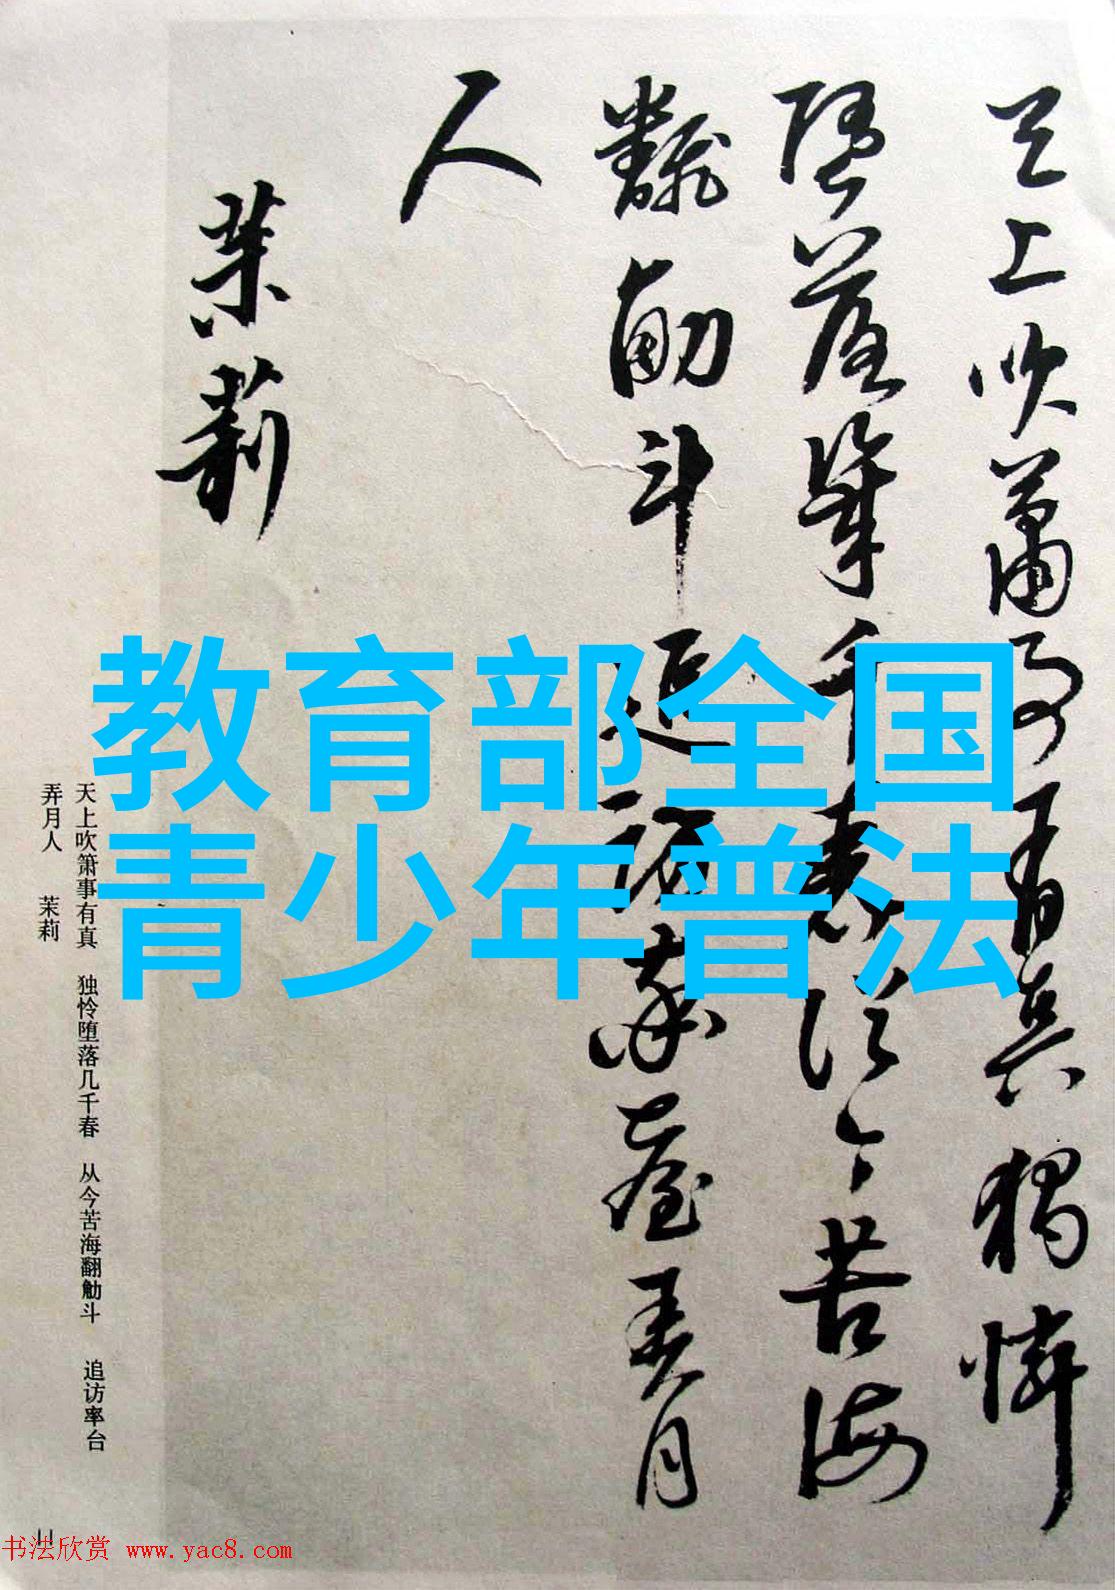 天上吹簫事有真獨憐
墮落幾千春從今苦海
翻觔斗追訪率臺弄月
人
茉莉
教育部全国
青少年普法
天上吹箫事有真 独怜堕落几千春 从今苦海翻觔斗 追访率台
弄月人 茉莉
11
书法欣赏 www.yac8.com